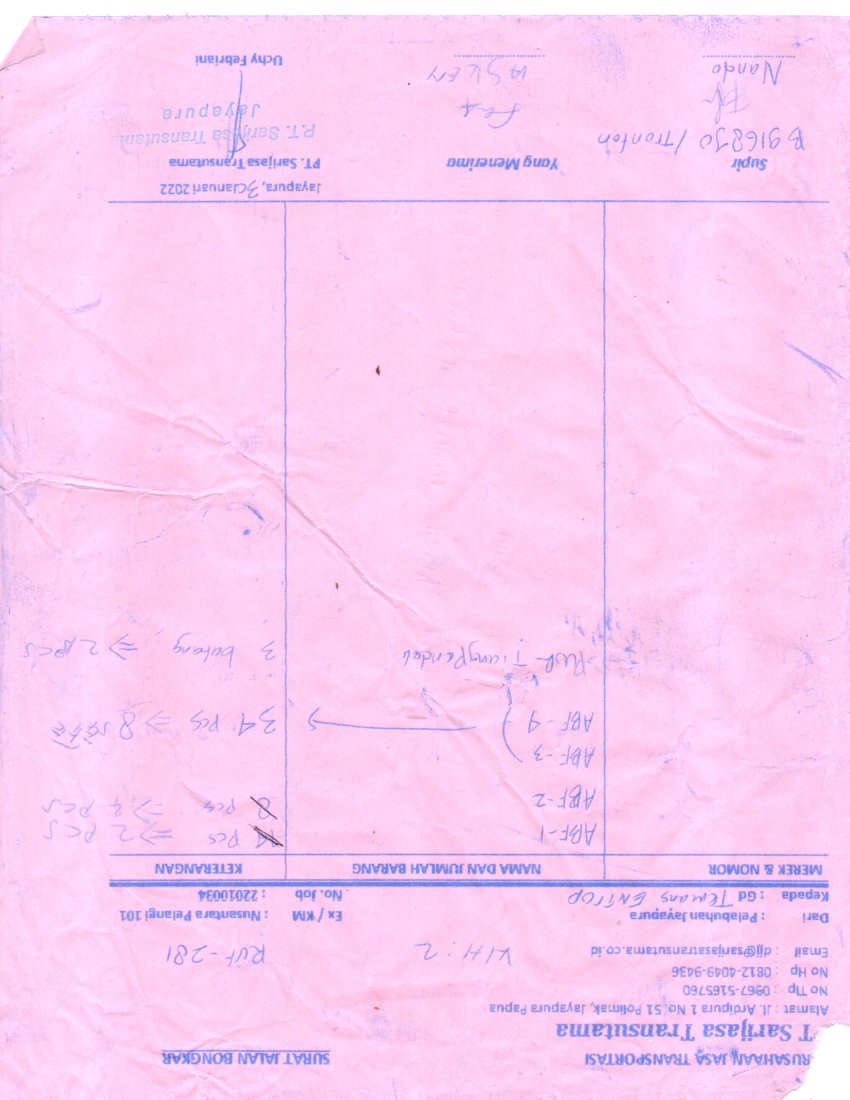 RUSAHAAN JASA TRANSPORTASI
SURAT JALAN BONGKAR
T Sarijasa Transutama
Alamat : Jl. Ardipura 1 No. 51 Polimak, Jayapura Papua
No Tlp : 0967-5165760
No Hp : 0812-4049-9436
Email : djj@sarijasatransutama.co.id
: 2
RUT-281
Dari : Pelabuhan Jayapura
Ex / KM : Nusantara Pelangi 101
Kepada : Gd Temans ENTROP
No. Job : 22010034
MEREK & NOMOR NAMA DAN JUMLAH BARANG KETERANGAN
ABF-1 pcs => 2 pcs
ABF-2 8 pcs => 2 pcs
ABF-3
ABF-4 34 pcs => 8
Tiang Pendek
3 batang => 2 pcs
Jayapura, 30 Januari 2022
Supir Yang Menerima PT. Sarijasa Transutama
B 9168 JO / Tronton
P.T. Sarijasa Transutama
Jayapura
Nando
Uchy Febriani